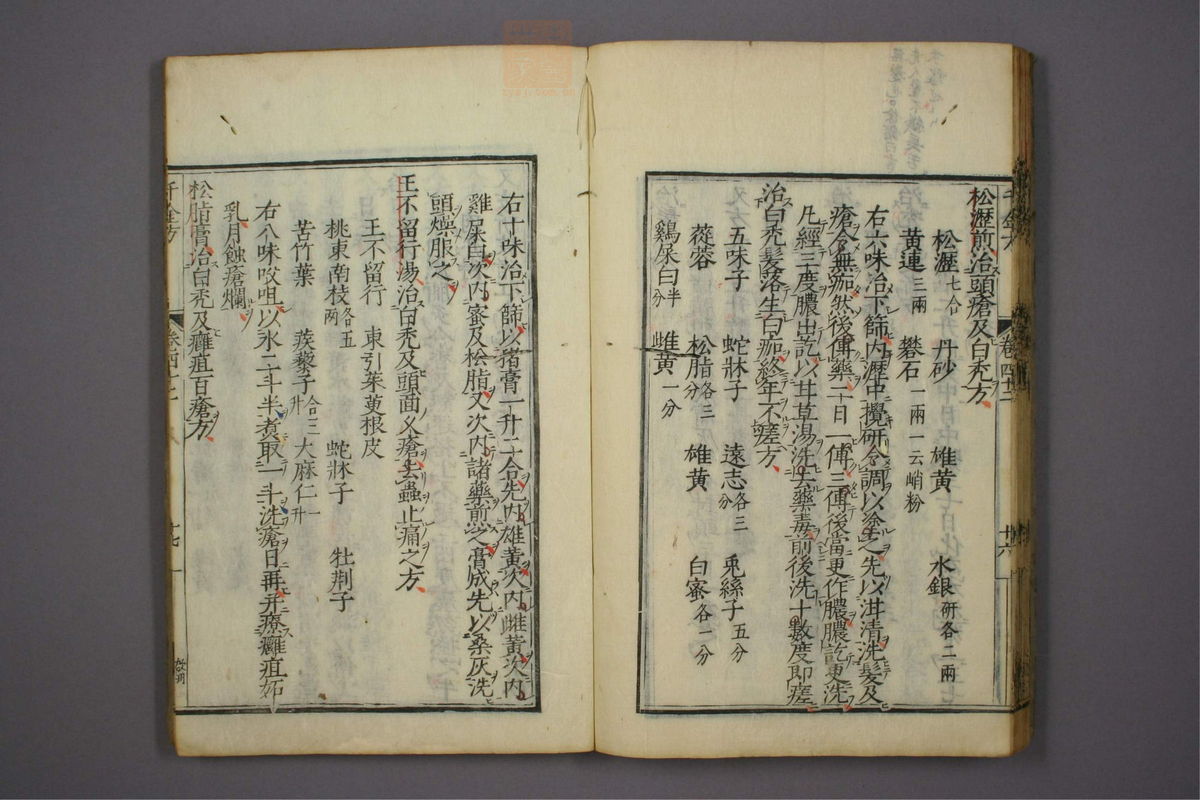 松瀝煎治頭瘡及白禿方
松瀝七合 丹砂 雄黄 水銀研各二兩
黄連三兩 礬石一兩一云峭粉
右六味治下篩内瀝中攪研令調以塗之先以泔清洗髮及
瘡令無痂然後傅藥二十日一傅三傅後當更作膿膿訖更洗
凡經三度膿出訖以甘草湯洗去藥毒前後洗十數度即瘥
治白禿髮落生白痂終年不瘥方
五味子 蛇牀子 遠志各三分 兎絲子五分
蓯蓉 松脂各三分 雄黄 白蜜各一分
鷄屎白半分 雌黄一分
右十味治下篩以猪膏一升二合先内雄黄次内雌黄次内
雞屎白次内蜜及松脂又次内諸藥煎之膏成先以桑灰洗
頭燥服之
王不留行湯治白禿及頭面久瘡去蟲止痛之方
王不留行 東引茱萸根皮
桃東南枝各五兩 蛇牀子 牡荆子
苦竹葉 蒺藜子各三升 大麻仁一升
右八味㕮咀以水二斗半煮取一斗洗瘡日再并療癰疽妬
乳月蝕瘡爛
松脂膏治白禿及癰疽百瘡方
千金方 卷四十二 十七